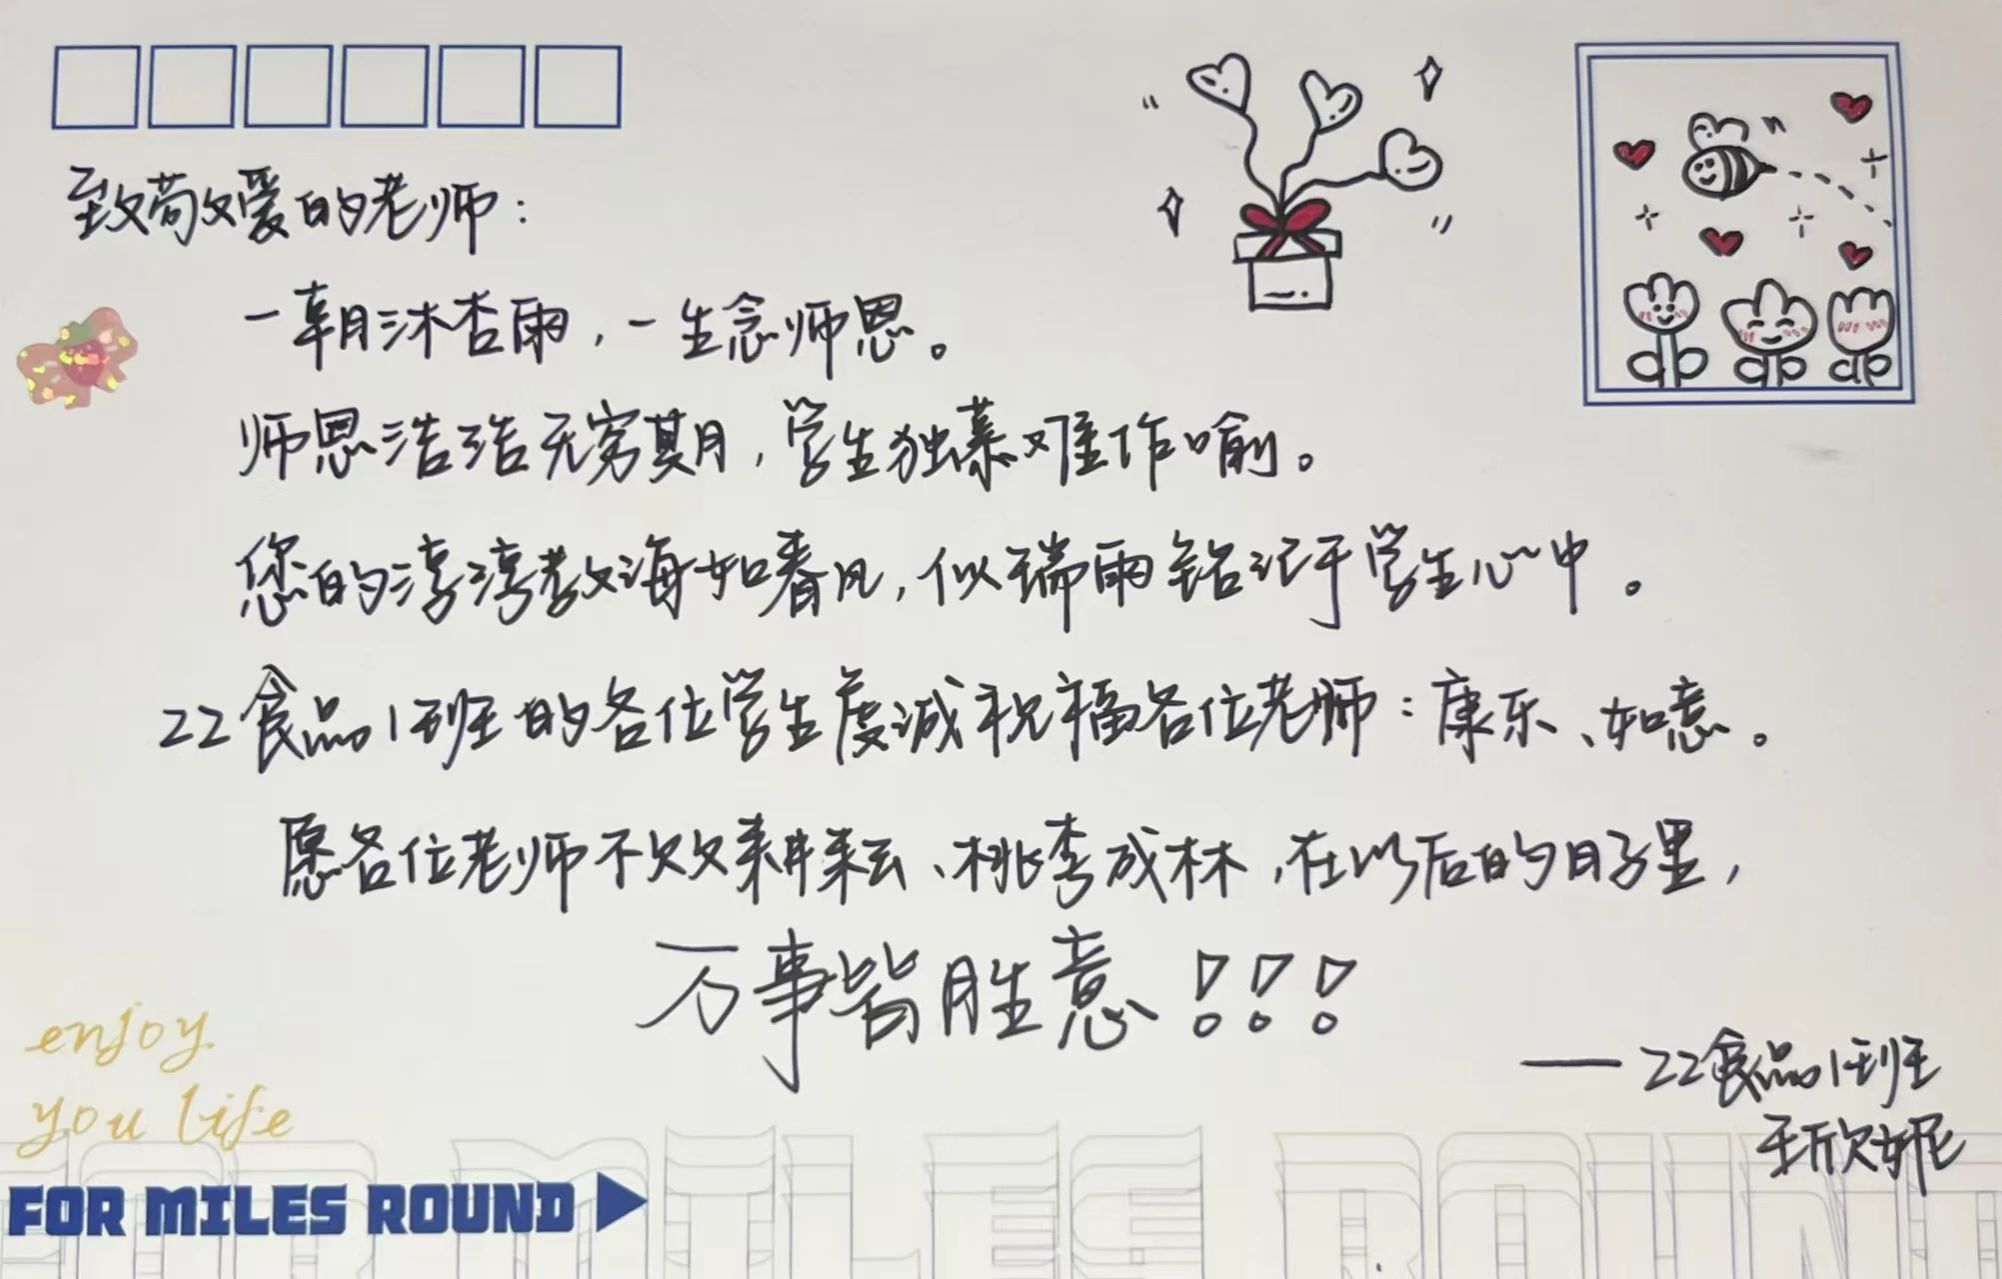 致敬爱的老师：
一朝沐杏雨，一生念师恩。
师恩浩浩无穷期，学生独慕难作喻。
您的淳淳教海如春风，似瑞雨铭记于学生心中。
22食品1班的各位学生虔诚祝福各位老师：康乐、如意。
愿各位老师不欠耕耘、桃李成林，在以后的日子里，
万事皆胜意！！！
——22食品1班
王欣妮
enjoy
you life
FOR MILES ROUND
FOR MILES ROUND